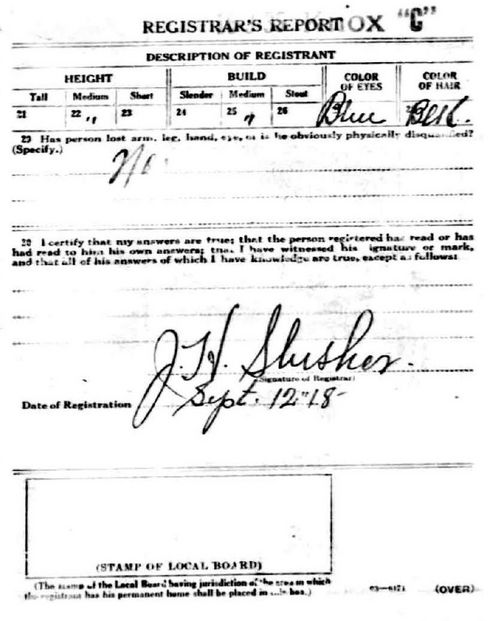 REGISTRAR'S REPORT OX "C"
DESCRIPTION OF REGISTRANT
HEIGHT BUILD COLOR OF EYES COLOR OF HAIR
Tall Medium Short Slender Medium Stout
21 22 " 23 24 25 " 26 Blue Blk.
29 Has person lost arm, leg, hand, eye, or is he obviously physically disqualified?
(Specify.)
No.
30 I certify that my answers are true; that the person registered has read or has
had read to him his own answers; that I have witnessed his signature or mark,
and that all of his answers of which I have knowledge are true, except as follows:
Slusher.
(Signature of Registrar)
Date of Registration Sept. 12"18-
(STAMP OF LOCAL BOARD)
(The stamp of the Local Board having jurisdiction of the area in which
the registrant has his permanent home shall be placed in this box.)
(OVER)